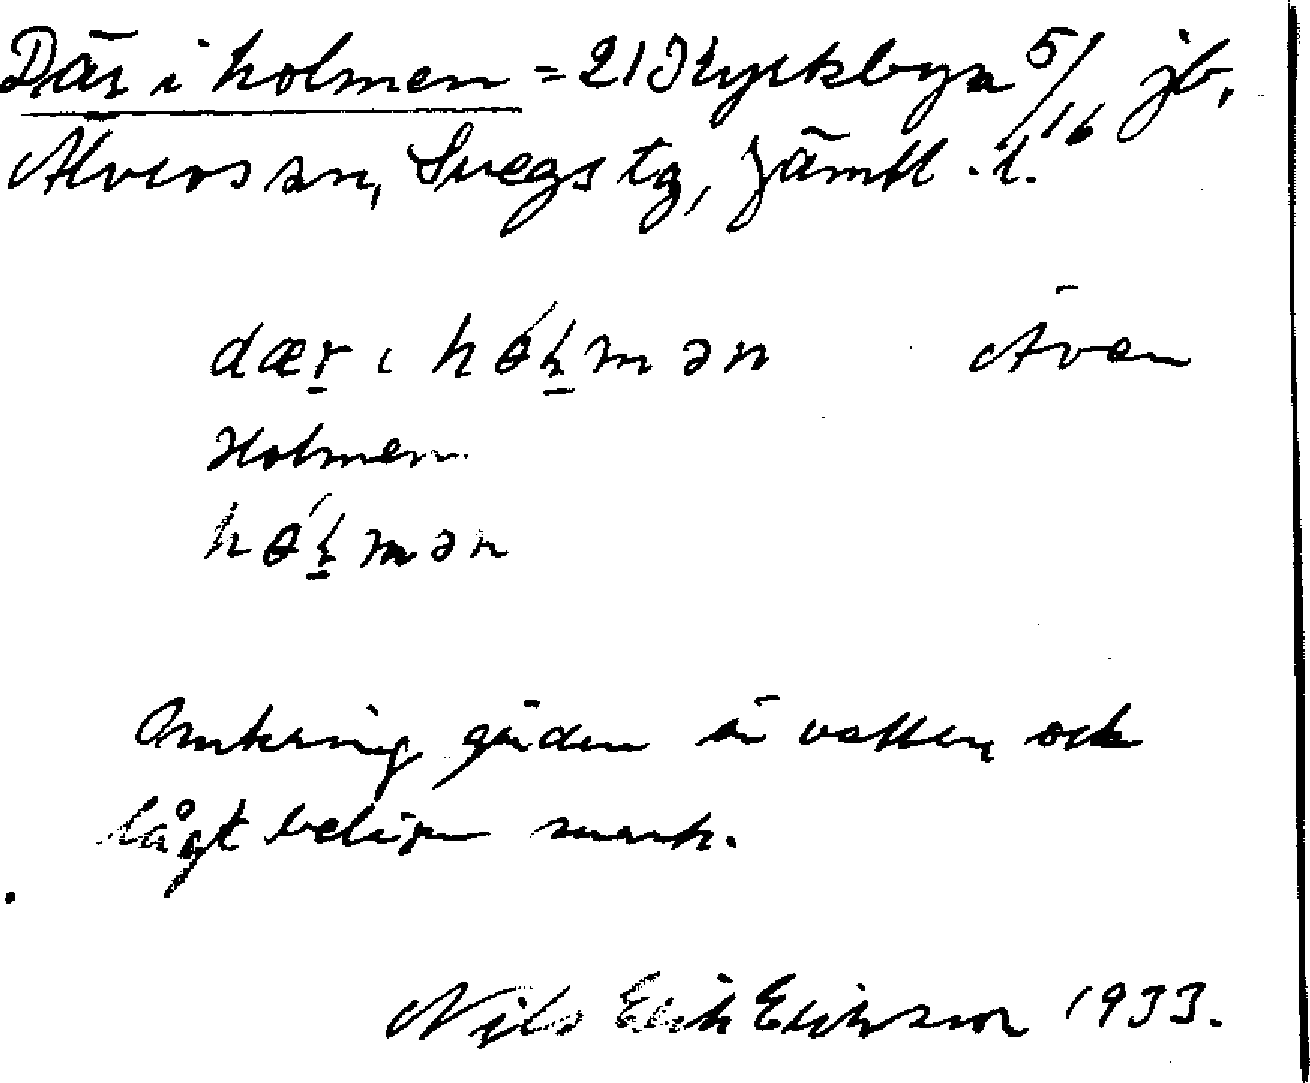 Där i holmen = 21 Kyrkbyn 5/16 jb.
Älvros sn, Svegs tg, Jämtl. l.
dær i hɵ́ɫmən Även
Holmen
hɵ́ɫmən
Omkring gården är vatten och
lågt belägen mark.
Nils Erik Eriksson 1933.